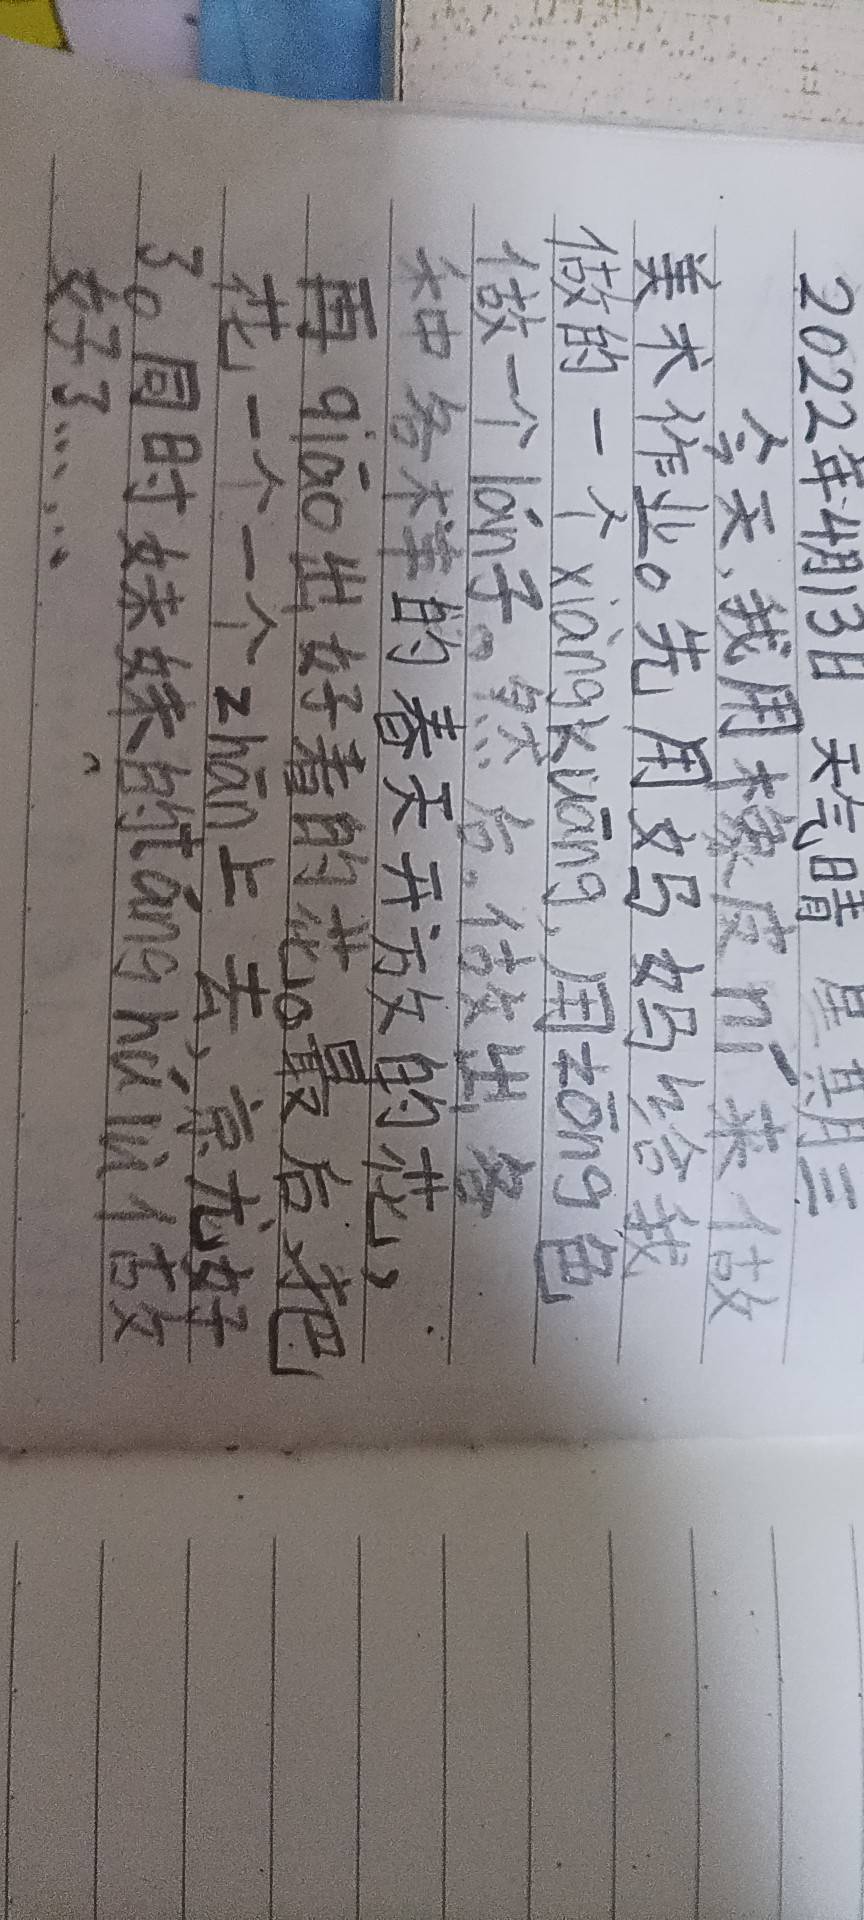 2022年4月13日 天气晴 星期三
今天，我用橡皮ní来做
美术作业。先用妈妈给我
做的一个xiàngkuāng，用zōng色
做一个lán子。然后，做出各
种各样的春天开放的花，
再qiāo出好看的花。最后，把
花一个一个zhān上去，就好
了。同时妹妹的táng hú lu 做
好了……